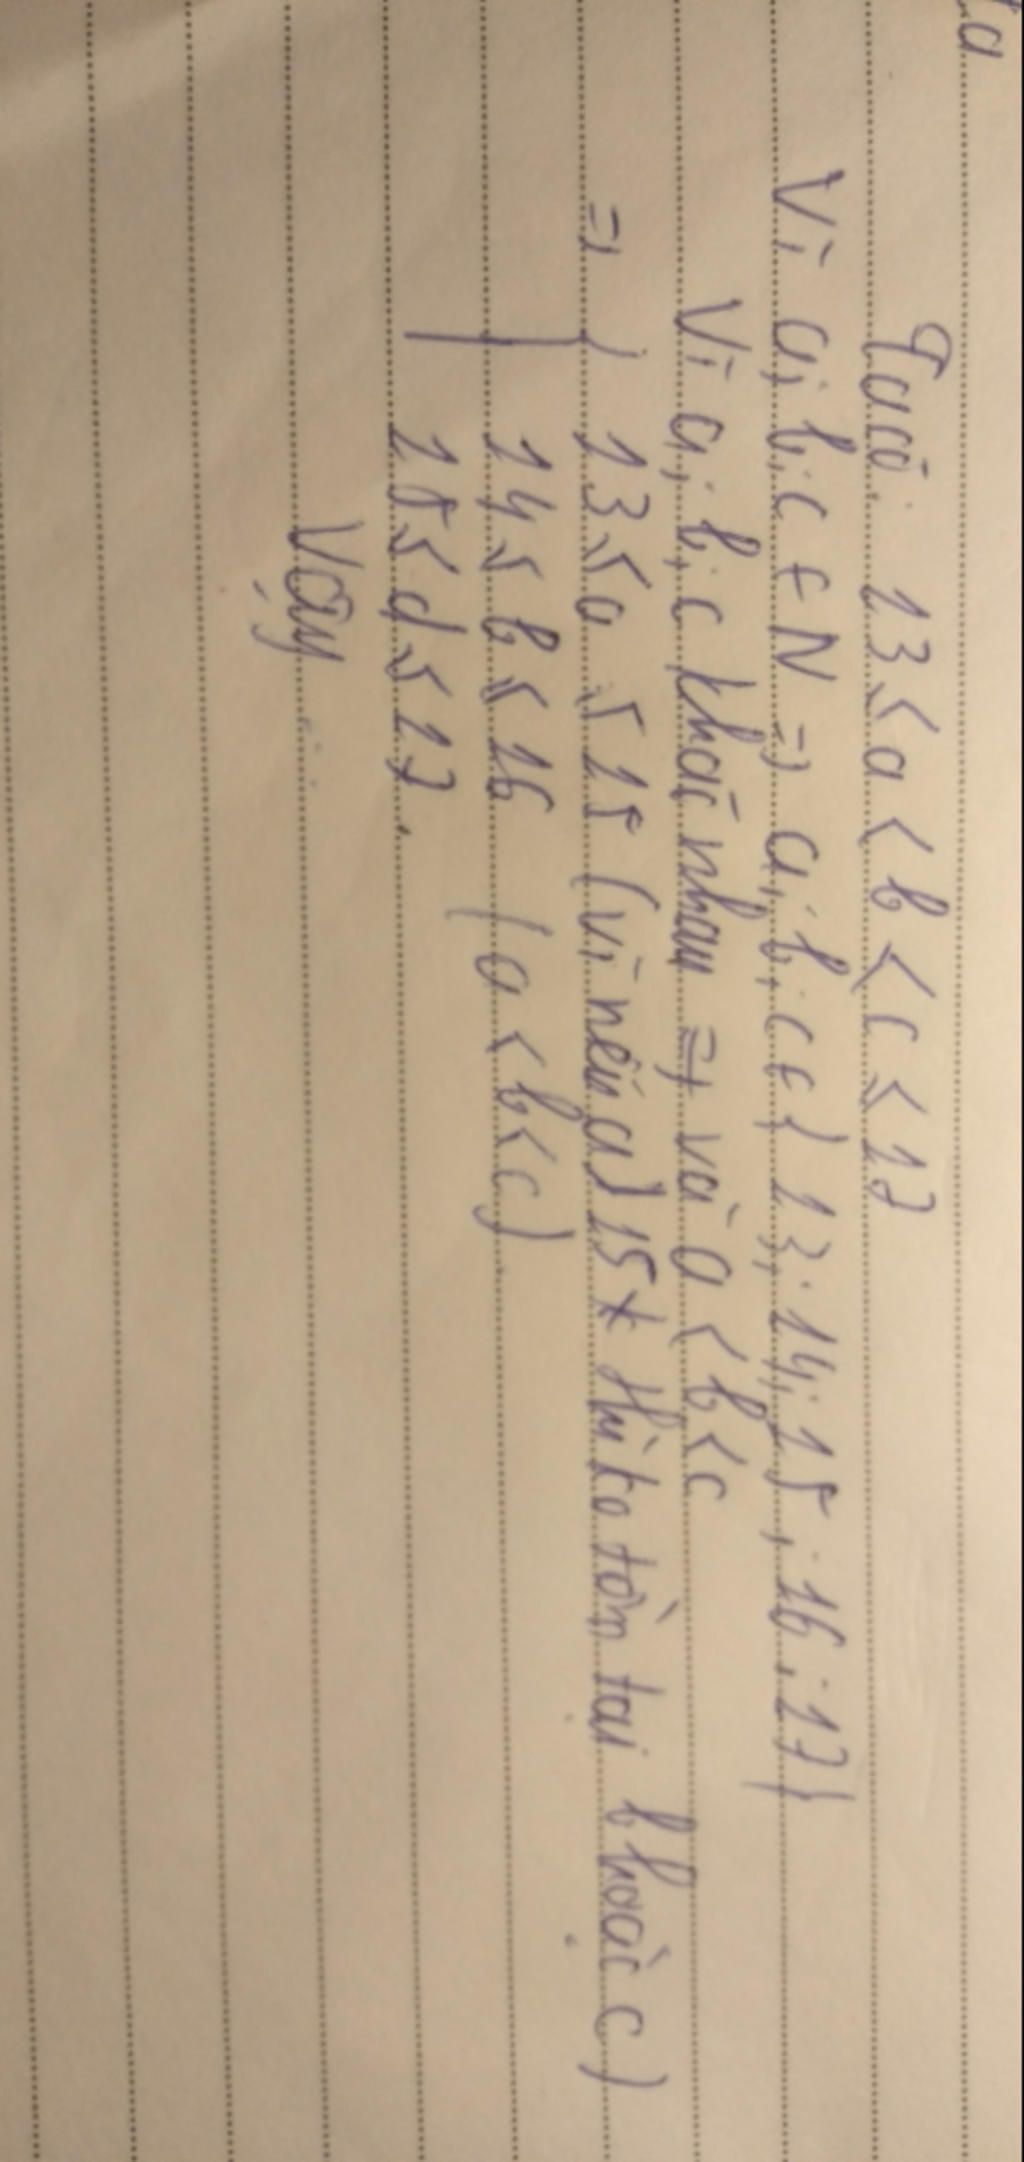 ta
Ta có: 13 ≤ a < b < c ≤ 17
Vì a; b; c ∈ N => a; b; c ∈ { 13; 14; 15; 16; 17}
Vì a; b; c khác nhau => và a < b < c
=> { 13 ≤ a ≤ 15 (vì nếu a > 15 thì ko tồn tại b hoặc c)
14 ≤ b ≤ 16 (a < b < c)
15 ≤ d ≤ 17.
Vậy ...